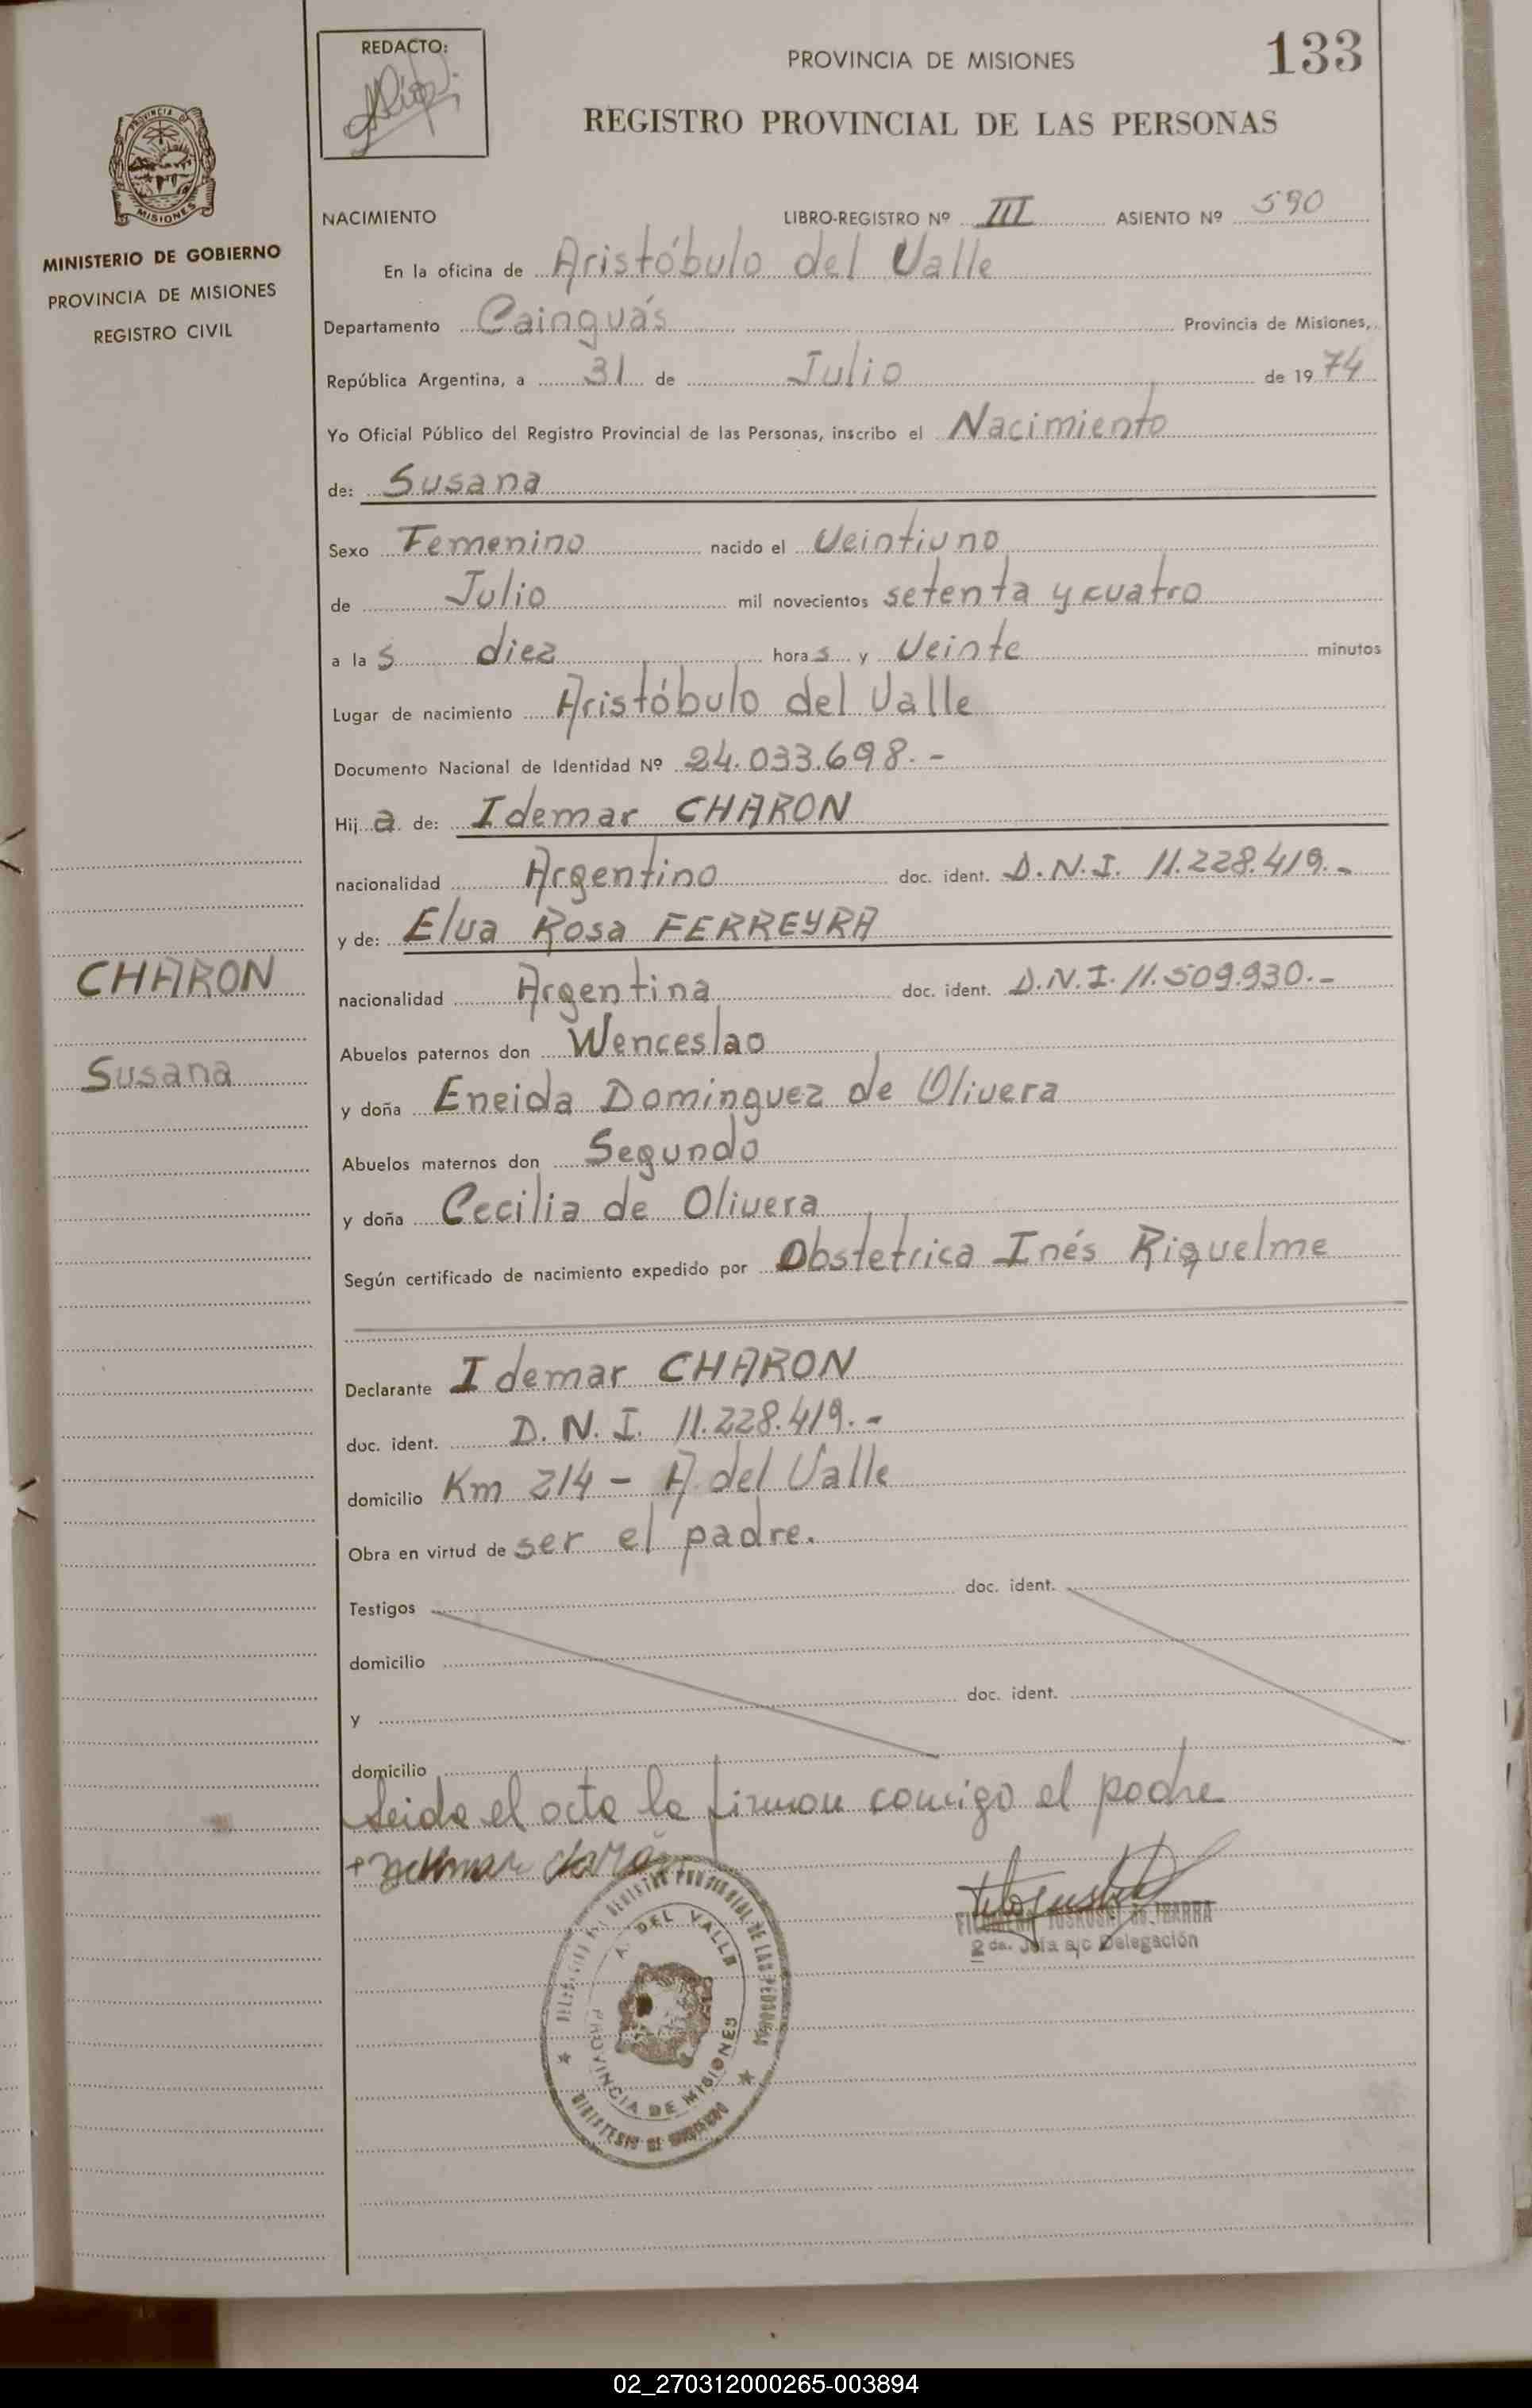 REDACTO:
PROVINCIA DE MISIONES
133
REGISTRO PROVINCIAL DE LAS PERSONAS
PROVINCIA
MISIONES
MINISTERIO DE GOBIERNO
PROVINCIA DE MISIONES
REGISTRO CIVIL
NACIMIENTO LIBRO-REGISTRO Nº III ASIENTO Nº 590
En la oficina de Aristóbulo del Valle
Departamento Cainguás Provincia de Misiones,
República Argentina, a 31 de Julio de 1974
Yo Oficial Público del Registro Provincial de las Personas, inscribo el Nacimiento
de: Susana
Sexo Femenino nacido el Veintiuno
de Julio mil novecientos setenta y cuatro
a las diez horas y Veinte minutos
Lugar de nacimiento Aristóbulo del Valle
Documento Nacional de Identidad Nº 24.033.698.-
Hija de: Idemar CHARON
nacionalidad Argentino doc. ident. D.N.I. 11.228.419.-
y de: Elva Rosa FERREYRA
CHARON
nacionalidad Argentina doc. ident. D.N.I. 11.509.930.-
Abuelos paternos don Wenceslao
Susana
y doña Eneida Dominguez de Olivera
Abuelos maternos don Segundo
y doña Cecilia de Olivera
Según certificado de nacimiento expedido por Obstetrica Inés Riquelme
Declarante Idemar CHARON
doc. ident. D.N.I. 11.228.419.-
domicilio Km 214 - A. del Valle
Obra en virtud de ser el padre.
Testigos doc. ident.
domicilio
y doc. ident.
domicilio
Leida el acta la firman conmigo el padre
DE IBARRA
2da. Jefa a/c Delegación
REGISTRO PROVINCIAL DE LAS PERSONAS
A. DEL VALLE
PROVINCIA DE MISIONES
MINISTERIO DE GOBIERNO
02_270312000265-003894